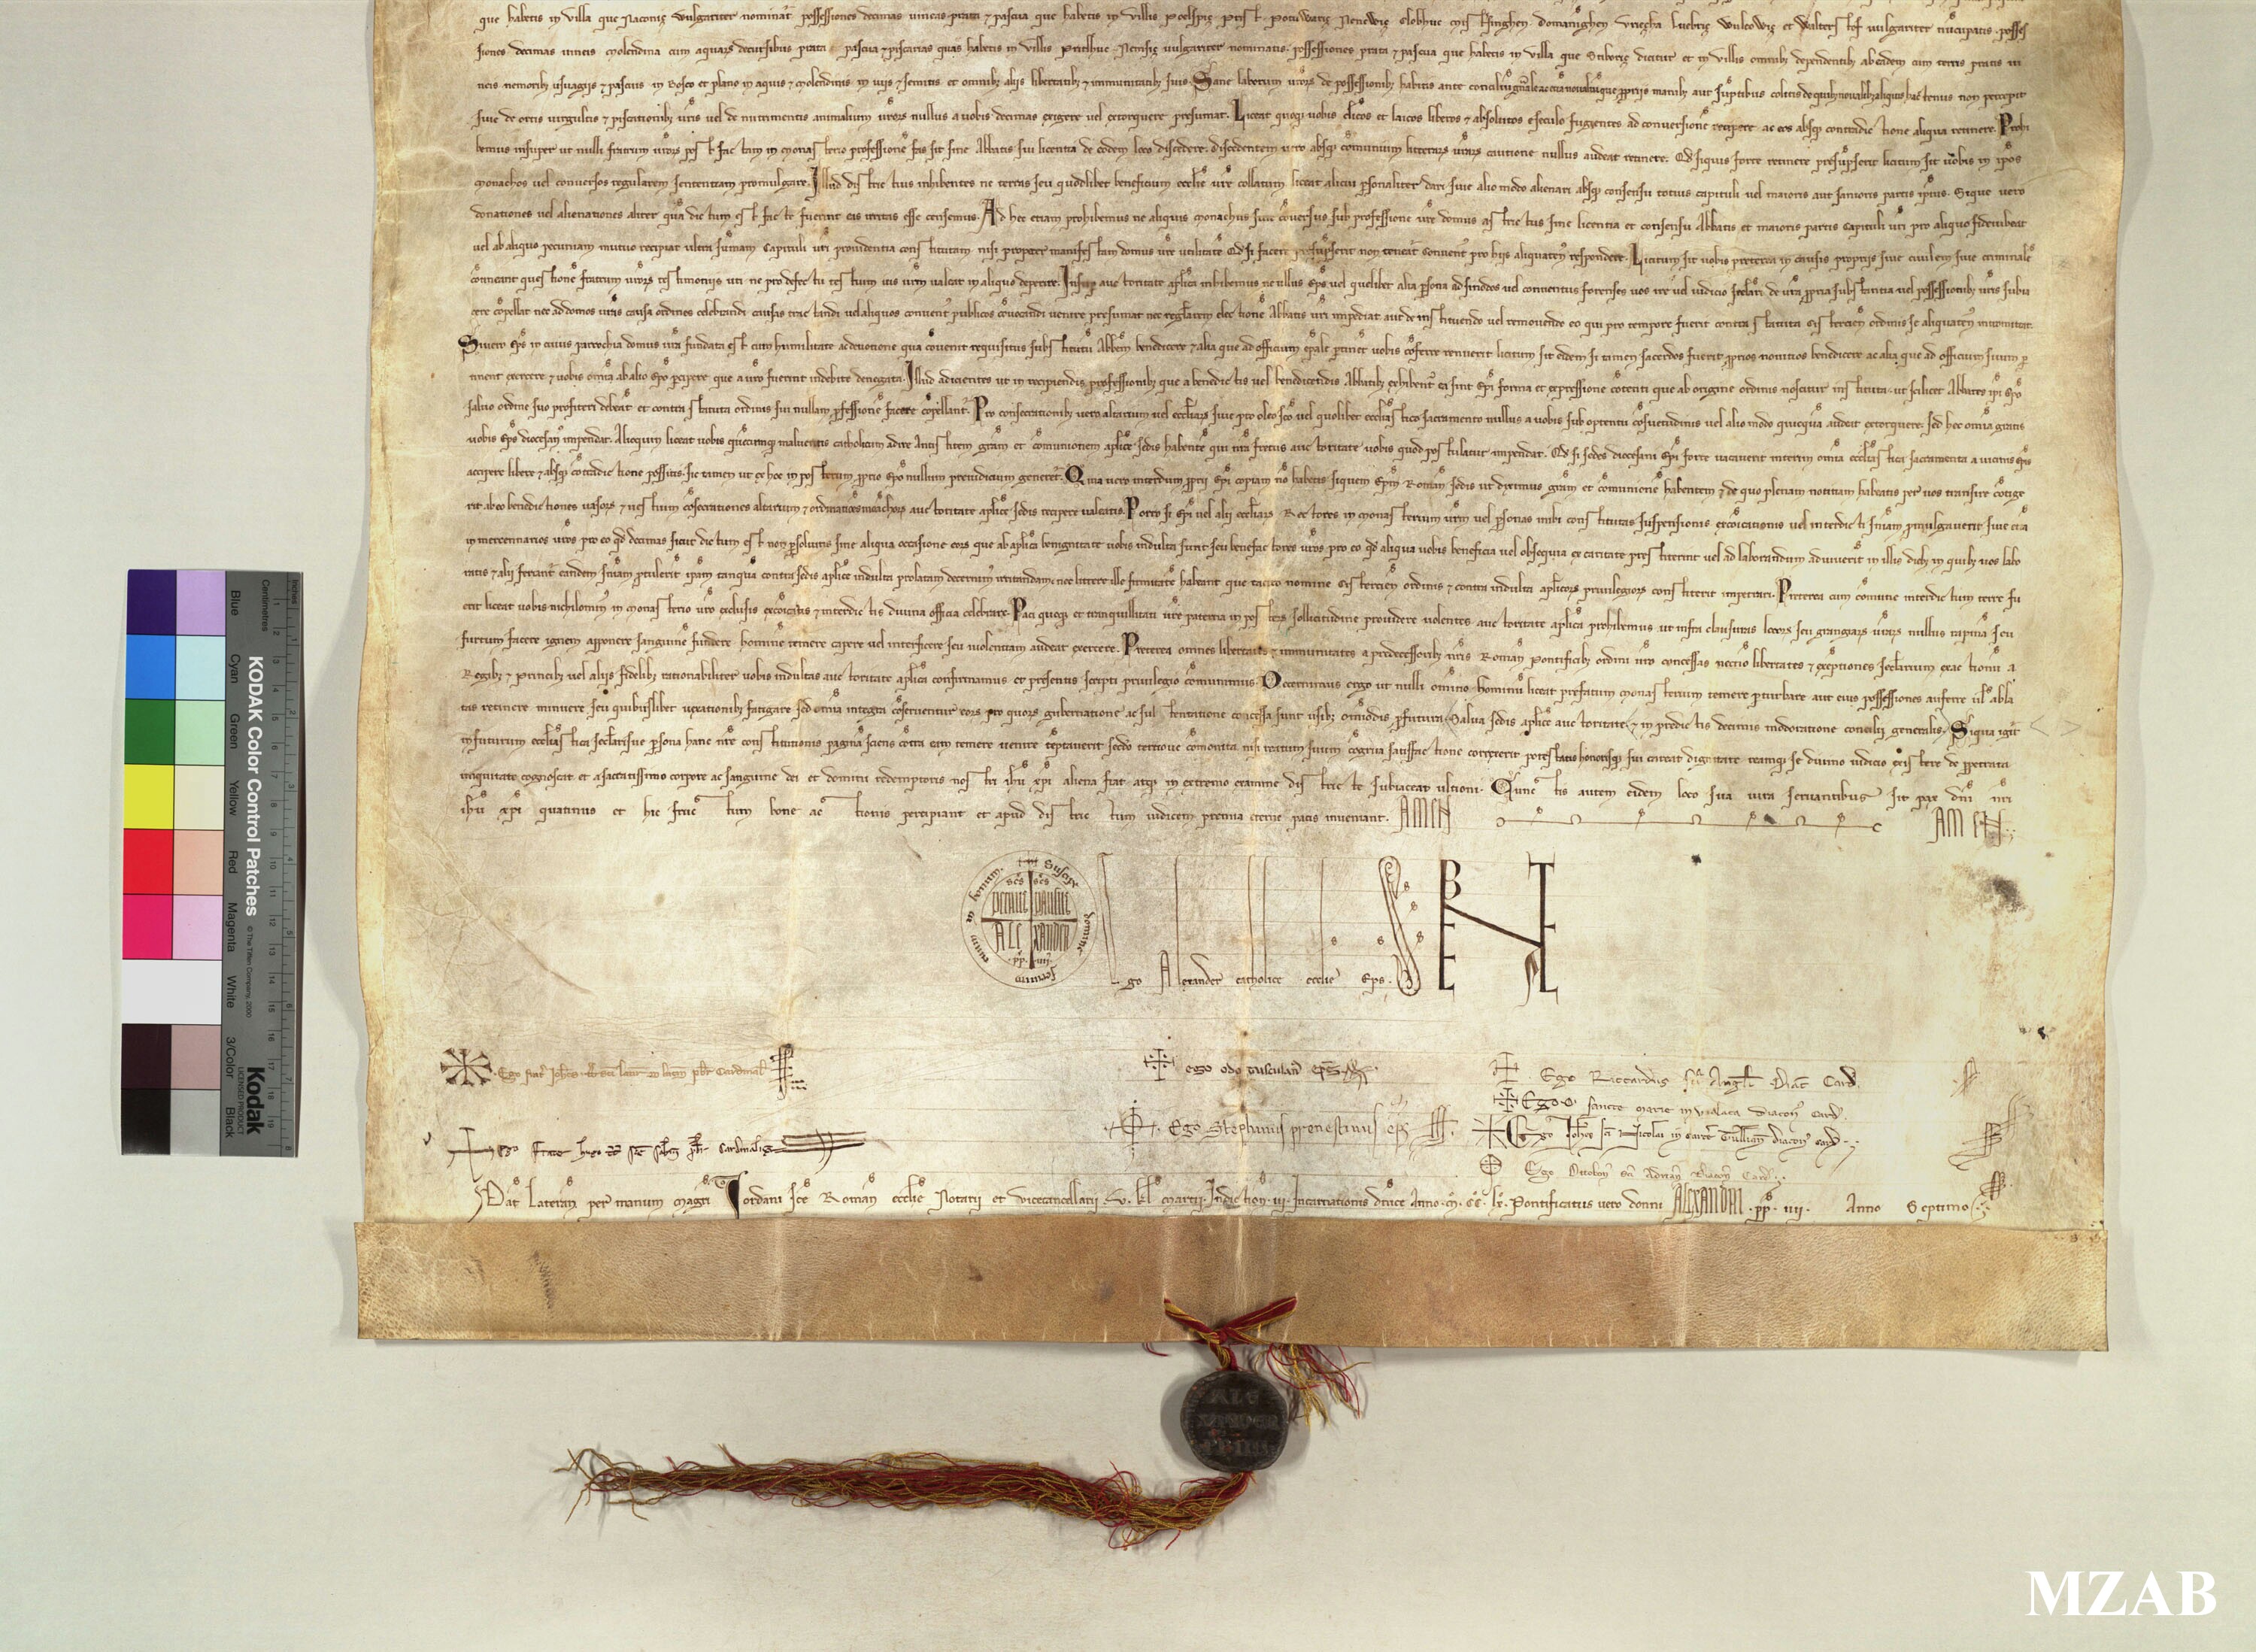 que habetis in villa que Naconiz wulgariter nominat᷑ possessiones decimas vineas prata ⁊ pascua que habetis in villis
siones decimas vineas molendina cum aquarum decursibus prata pascua ⁊ piscarias quas habetis in villis vulgariter nominatis. possessiones prata ⁊ pascua que habetis in villa que dicitur et in villis omnib; dependentib; ab eadem cum terris pratis vi
neis nemorib; usuagiis ⁊ pascuis in bosco et plano in aquis ⁊ molendinis in viis ⁊ semitis et omnib; aliis libertatib; ⁊ immunitatib; suis. Sane laborum vr̄orꝫ de possessionib; habitis ante concilium
sive de ortis virgultis ⁊ piscationib; vr̄is vel de nutrimentis animalium vr̄orꝫ nullus a vobis decimas exigere vel extorquere presumat. Liceat quoq; vobis cl̄icos et laicos liberos ⁊ absolutos e seculo fugientes ad conversionē recipere ac eos absq; contradictione aliqua retinere. Prohi
bemus insuper ut nulli fratrum vr̄orꝫ post factam in monasterio professionē fas sit sine Abbatis sui licentia de eodem loco discedere. discedentem vero absq; cōmunium litterarꝫ vr̄arꝫ cautione nullus audeat retinere. Qd̄ si quis forte retinere presūpserit licitum sit vobis in ip̄os
monachos vel conversos regularem sententiam promulgare. Illud districtius inhibentes ne terras seu quodlibet beneficium eccl̄ie vr̄e collatum liceat alicui p̄sonaliter dari sive alio modo alienari absq; consensu totius capituli vel maioris aut sanioris partis ip̄ius. Si que vero
donationes vel alienationes aliter quā dictum est facte fuerint eas irritas esse censemus. Ad hec etiam prohibemus ne aliquis monachus sive cōversus sub professione vr̄e domus astrictus sine licentia et consensu Abbatis et maioris partis Capituli vr̄i pro aliquo fideiubeat
vel ab aliquo pecuniam mutuo recipiat ultra sūmam Capituli vr̄i providentia constitutam. nisi propter manifestam domus vr̄e utilitatē. Qd̄ si facere presūpserit non teneat᷑ conventꝰ pro hiis aliquatenꝰ respondere. Licitum sit vobis preterea in causis propriis sive civilem sive criminalē
cōtineant questionē fratrum vr̄orꝫ testimoniis uti ne pro defectu testium ius vr̄m valeat in aliquo deperire. Insup̄ auctoritate ap̄lica inhibemus ne ullus Ep̄s vel quelibet alia p̄sona ad sinodos vel conventus forenses vos ire vel iudicio sc̄lari de vr̄a p̄pria substantia vel possessionib; vr̄is subia
cere cōpellat nec ad domos vr̄as causa ordines celebrandi causas tractandi vel aliquos conventꝰ publicos cōvocandi venire presumat nec reglarem electionē Abbatis vr̄i impediat aut de instituendo vel removendo eo qui pro tempore fuerit contra statuta Cisterciēn ordinis se aliquatenꝰ intromittat.
Si vero Ep̄s in cuius parrochia domus vr̄a fundata est cum humilitate ac devotione qua cōvenit requisitus substitutū Abb̄em benedicere ⁊ alia que ad officium ep̄ale p̄tinet vobis cōferre renuerit licitum sit eidem si tamen sacerdos fuerit p̄prios novitios benedicere ac alia que ad officium suum p̄
tinent exercere ⁊ vobis omīa ab alio ep̄o p̄cipere que a vr̄o fuerint indebite denegata. Illud adicientes ut in recipiendis professionib; que a benedictis vel benedicendis Abbatib; exhibentꝰ ea sint Ep̄i forma et expressione cōtenti que ab origine ordinis noscitur instituta. ut scilicet Abbates ip̄i Ep̄o
salvo ordine suo profiteri debeāt et contra statuta ordinis sui nullam p̄fessionē facere cōpellant᷑. Pro consecrationib; vero altarium vel eccl̄iarꝫ sive pro oleo sc̄o vel quolibet eccl̄iastico sacramento nullus a vobis sub optentu cōsuetudinis vel alio modo quicquā audeat extorquere. sed hec omīa gratis
vobis Ep̄s diocesanꝰ impendat. Alioquin liceat vobis quēcumq; malueritis catholicum adire Antistitem grām et cōmunionem ap̄lice sedis habentē qui nr̄a fretus auctoritate vobis quod postulatur impendat. Qd̄ si sedes diocesani Ep̄i forte vacaverit interim omīa eccl̄iastica sacramenta a vicinis Ep̄is
accipere libere ⁊ absq; cōtradictione possitis. sic tamen ut ex hoc in posterum p̄prio Ep̄o nullum preiudicium generet᷑. Quia vero interdum p̄prii Ep̄i copiam nō habetis si quem Ep̄m Romān sedis ut diximus grām et cōmunionē habentem ⁊ de quo plenam notitiam habeatis per vos transire cōtige
rit ab eo benedictiones vasorꝫ ⁊ vestium cōsecrationes altarium ⁊ ordinationes monachorꝫ auctoritate ap̄lice sedis recipere valeatis. Porro si Ep̄i vel alii eccl̄iarꝫ Rectores in monasterium vr̄m vel p̄sonas inibi constitutas suspensionis excōicationis vel interdicti sn̄iam p̄mulgaverit sive etiā
in mercennarios vr̄os pro eo qd̄ decimas sicut dictum est non p̄solvitis sine aliqua occasione eorꝫ que ab ap̄lica benignitate vobis indulta sunt seu benefactores vr̄os pro eo qd̄ aliqua vobis beneficia vel obsequia ex caritate prestiterint vel ad laborandum adiuverīt in illis dieb; in quib; vos labo
ratis ⁊ alii feriant᷑ eandem sn̄iam p̄tulerīt ip̄am tanquā contra sedis ap̄lice indulta prolatam decernimꝰ irritandam. nec littere ille firmitatē habeant que tacito nomine Cisterciēn ordinis ⁊ contra indulta ap̄licorꝫ privilegiorꝫ constiterit impetrari. Preterea cum cōmune interdictum terre fu
erit liceat vobis nichilominꝰ in monasterio vr̄o exclusis excōicatis ⁊ interdictis divina officia celebrare. Paci quoq; et tranquillitati vr̄e paterna in posterꝫ sollicitudine providere volentes auctoritate ap̄lica prohibemus ut infra clausuras locorꝫ seu grangiarꝫ vr̄arꝫ nullus rapinā seu
furtum facere ignem apponere sanguinē fundere hominē temere capere vel interficere seu violentiam audeat exercere. Preterea omnes libertates ⁊ immunitates a predecessorib; nr̄is Romān Pontificib; ordini vr̄o concessas necnō libertates ⁊ exēptiones sc̄larium exactionū a
Regib; ⁊ Principib; vel aliis fidelib; rationabiliter vobis indultas auctoritate ap̄lica confirmamus et presentis scripti privilegio cōmunimus. Decernimus ergo ut nulli omīno hominū liceat prefatum monasterium temere p̄turbare aut eius possessiones auferre vl̄ abla
tas retinere minuere seu quibuslibet vexationib; fatigare sed omīa integra cōserventur eorꝫ pro quorꝫ gubernatione ac sustentatione concessa sunt usib; omīmodis p̄futura. Salva sedis ap̄lice auctoritate ⁊ in predictis decimis moderatione concilii generalis. Si qua igit᷑
in futurum eccl̄iastica sc̄larisve p̄sona hanc nr̄e constitutionis paginā sciens cōtra eam temere venire tēptaverit secūdo tertiove cōmonita nisi reatum suum cōgrua satisfactione correxerit potestatis honorisq; sui careat dignitate reamq; se divino iudicio existere de p̄petrata
iniquitate cognoscat et a sacratissimo corpore ac sanguine dei et domini redemptoris nostri ih̄u xp̄i aliena fiat atq; in extremo examine districte subiaceat ultioni. Cunctis autem eidem loco sua iura servantibus sit pax dn̄i nr̄i
ih̄u xp̄i quatinus et hic fructum bone actionis percipiant et apud districtum iudicem premia eterne pacis inveniant. AMEN AMEN
Suscipe domine servum tuum in bonum
sc̄s sc̄s
petrus paulus
ALEXANDER
pp̄ IIII
Ego Alexander catholice eccl̄ie Ep̄s.
BENE VALETE
Ego frat᷑ Joh̄es tt̄ sc̄i laur̄ in lucīn pb̄r Cardinal᷑
ego odo tusculan᷑ ep̄s
Ego Riccardus sc̄i Angl̄i Diac̄ Card̄.
Ego O. sancte marie in vialata diacon᷑ Card̄.
Ego frater hugo tt̄ sc̄e sabīe pb̄r Cardinalis
Ego Stephanus prenestinus ep̄s
Ego Joh̄es sc̄i Nicolai in carcē tullian᷑ diacon᷑ card̄
Ego Ottobon᷑ sc̄i Adriān diacon᷑ Card̄.
Dat᷑ Laterān per manum magr̄i Jordani sc̄e Romān eccl̄ie Notarii et vicecancellarii. v. kl̄ martii. Indictiōn. iii. Incarnationis dn̄ice Anno. M. CC. lx. Pontificatus vero domni ALEXANDRI. pp̄. IIII. Anno Septimo
ALE
XANDER
PP IIII
KODAK Color Control Patches
© The Tiffen Company, 2000
Kodak
LICENSED PRODUCT
Blue Cyan Green Yellow Red Magenta White 3/Color Black
Inches
1 2 3 4 5 6 7 8
Centimetres
1 2 3 4 5 6 7 8 9 10 11 12 13 14 15 16 17 18 19
MZAB